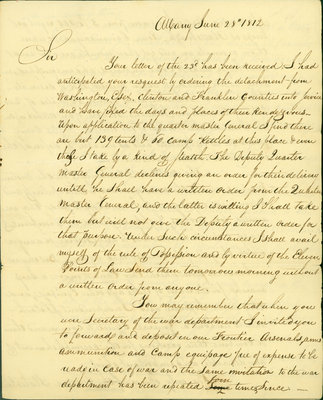 Albany June 28th 1812
Sir
Your letter of the 23d has been received I had
anticipated your resquest by ordering the detachment from
Washington, Essex, Clinton and Franklin Counties into Service
and have fixed the days and places of their Rendezvous
Upon application to the quarter master General I find there
are but 139 tents & 60 Camp Kettles at this place & even
these I take by a kind of stealth. The Deputy Quarter
Master General declines giving an order for their delivery
untill he Shall have a written order from the Quarter
Master General, and the latter is willing I Shall take
them but will not give the Deputy a written order for
that purpose. Under Such circumstances I Shall avail
myself of the rule of Possession and by virtue of the Eleven
Points of Law Send them tomorrow morning without
a written order from any one.
You may remember that when you
were Secretary of the war department I invited you
to forward and deposit in our Frontier Arsenals, arms
ammunition and Camp equipage free of expense to be
ready in Case of war and the Same invitation to the war
department has been repeated four times Since —